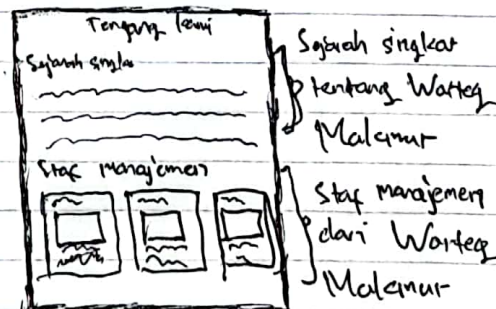 Tentang kami
Sejarah singkat
Staf Manajemen
Sejarah singkat
tentang Warteg
Malamur
Staf manajemen
dari Warteg
Malamur